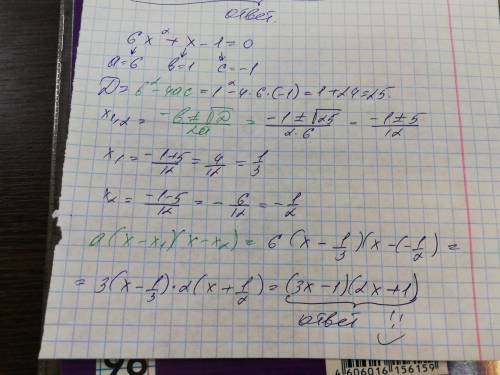 ответ.
6x² + x - 1 = 0
a=6 b=1 c=-1
D = b² - 4ac = 1² - 4·6·(-1) = 1 + 24 = 25.
x₁,₂ = (-b ± √D)/2a = (-1 ± √25)/(2·6) = (-1 ± 5)/12
x₁ = (-1+5)/12 = 4/12 = 1/3
x₂ = (-1-5)/12 = -6/12 = -1/2
a(x-x₁)(x-x₂) = 6(x - 1/3)(x - (-1/2)) =
= 3(x - 1/3)·2(x + 1/2) = (3x-1)(2x+1)
ответ !!
4606016156159